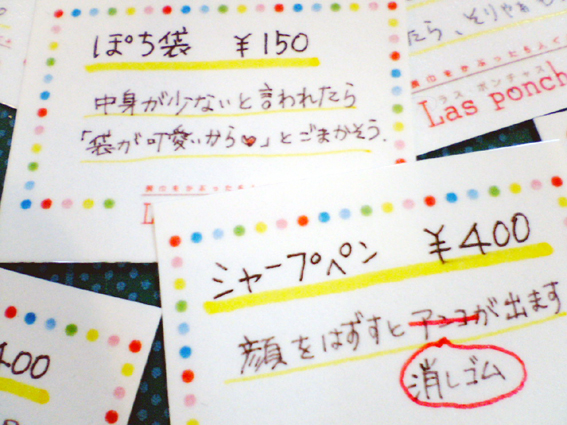 ぽち袋 ¥150
中身が少ないと言われたら
「袋が可愛いから♥」とごまかそう.
たら、そりゃあも
Las ponch
ラス ポンチャス
Las
シャープペン ¥400
顔をはずすとアンコが出ます
消しゴム
400